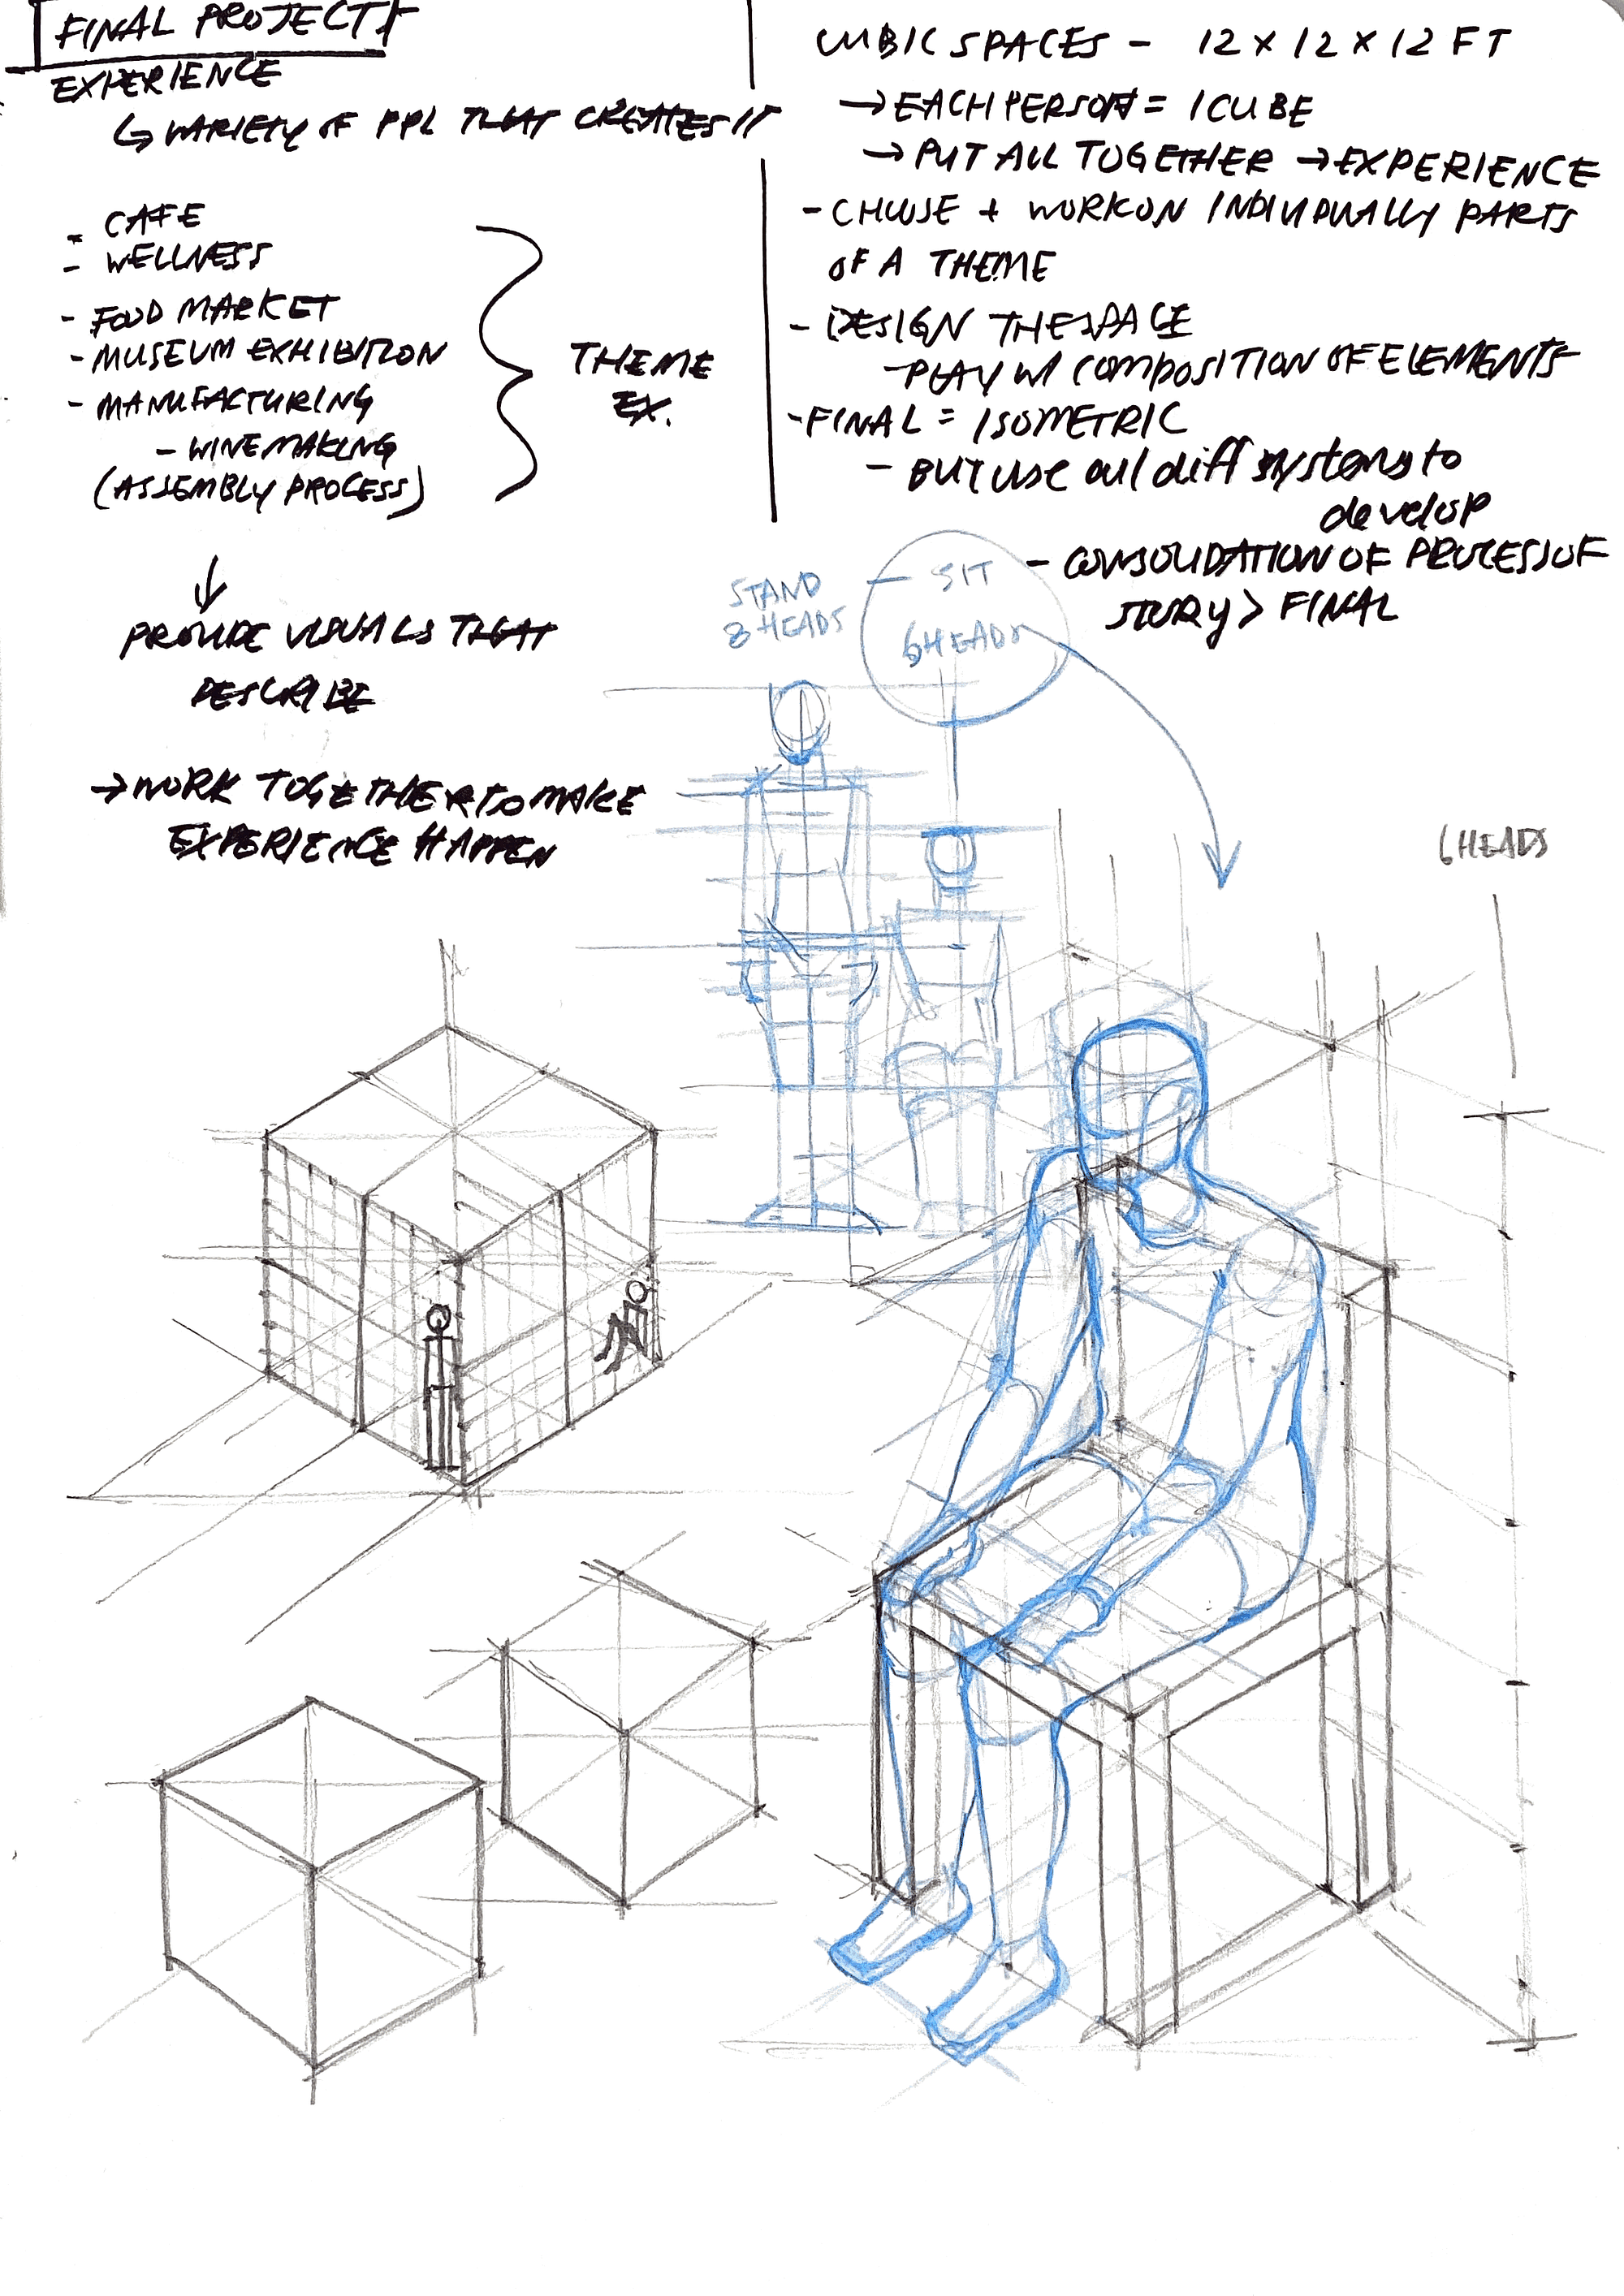 FINAL PROJECT
EXPERIENCE
↳ VARIETY OF PPL THAT CREATES IT
- CAFE
- WELLNESS
- FOOD MARKET
- MUSEUM EXHIBITION
- MANUFACTURING
- WINEMAKING
(ASSEMBLY PROCESS)
THEME
EX.
↓
PROVIDE VISUALS THAT
DESCRIBE
→ WORK TOGETHER TO MAKE
EXPERIENCE HAPPEN
CUBIC SPACES - 12 x 12 x 12 FT
→ EACH PERSON = 1 CUBE
→ PUT ALL TOGETHER → EXPERIENCE
- CHOOSE + WORK ON INDIVIDUALLY PARTS
OF A THEME
- DESIGN THE SPACE
- PLAY W/ COMPOSITION OF ELEMENTS
- FINAL = ISOMETRIC
- BUT USE all diff systems to
develop
- CONSOLIDATION OF PROCESS OF
STORY > FINAL
STAND - SIT
8 HEADS 6 HEADS
6 HEADS